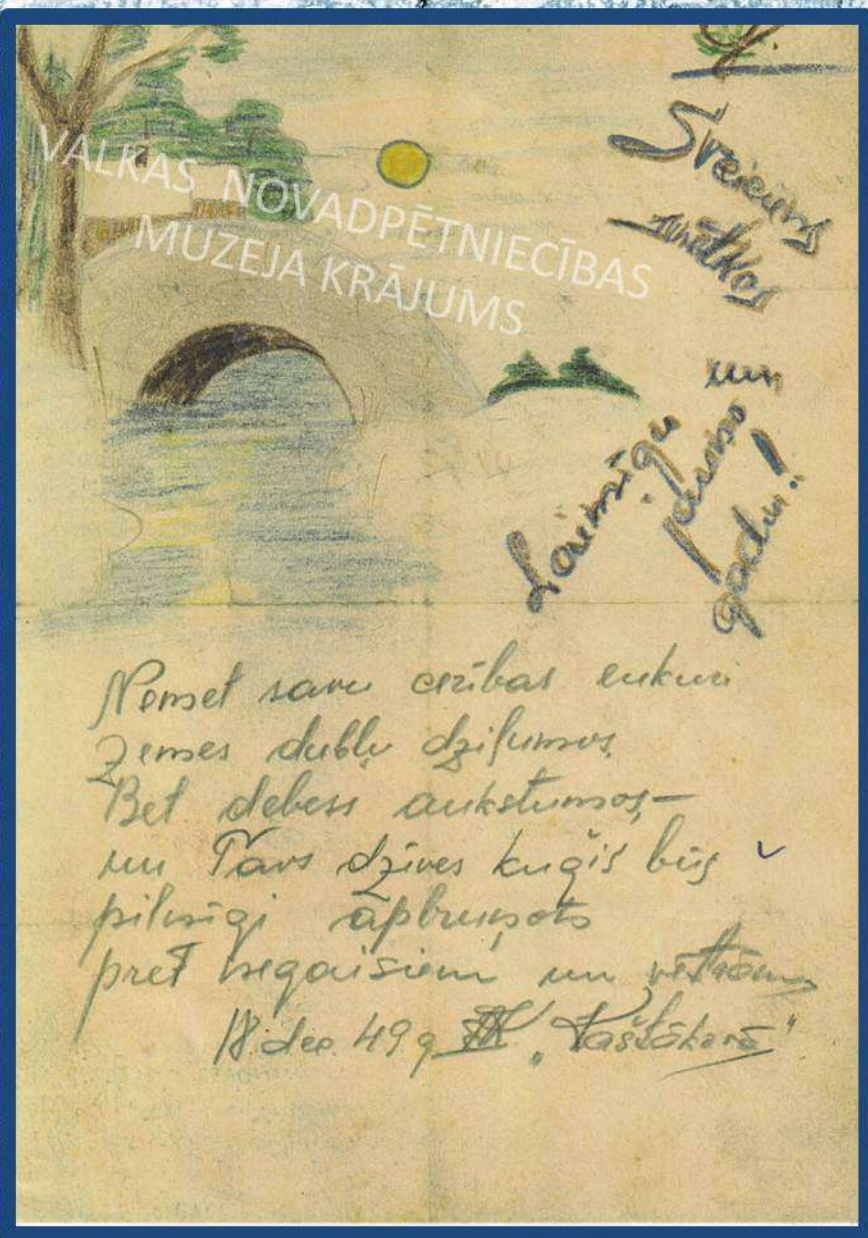 VALKAS NOVADPĒTNIECĪBAS
MUZEJA KRĀJUMS
Sveiciens
svētkos
un
Laimīgu
jauno
gadu!
Nemet savu cerības enkuri
Zemes dubļu dziļumos,
Bet debess aukstumos, –
un Tavs dzīves kuģis būs
pilnīgi apbruņots
pret negaisiem un vētrām
18. dec. 49 g